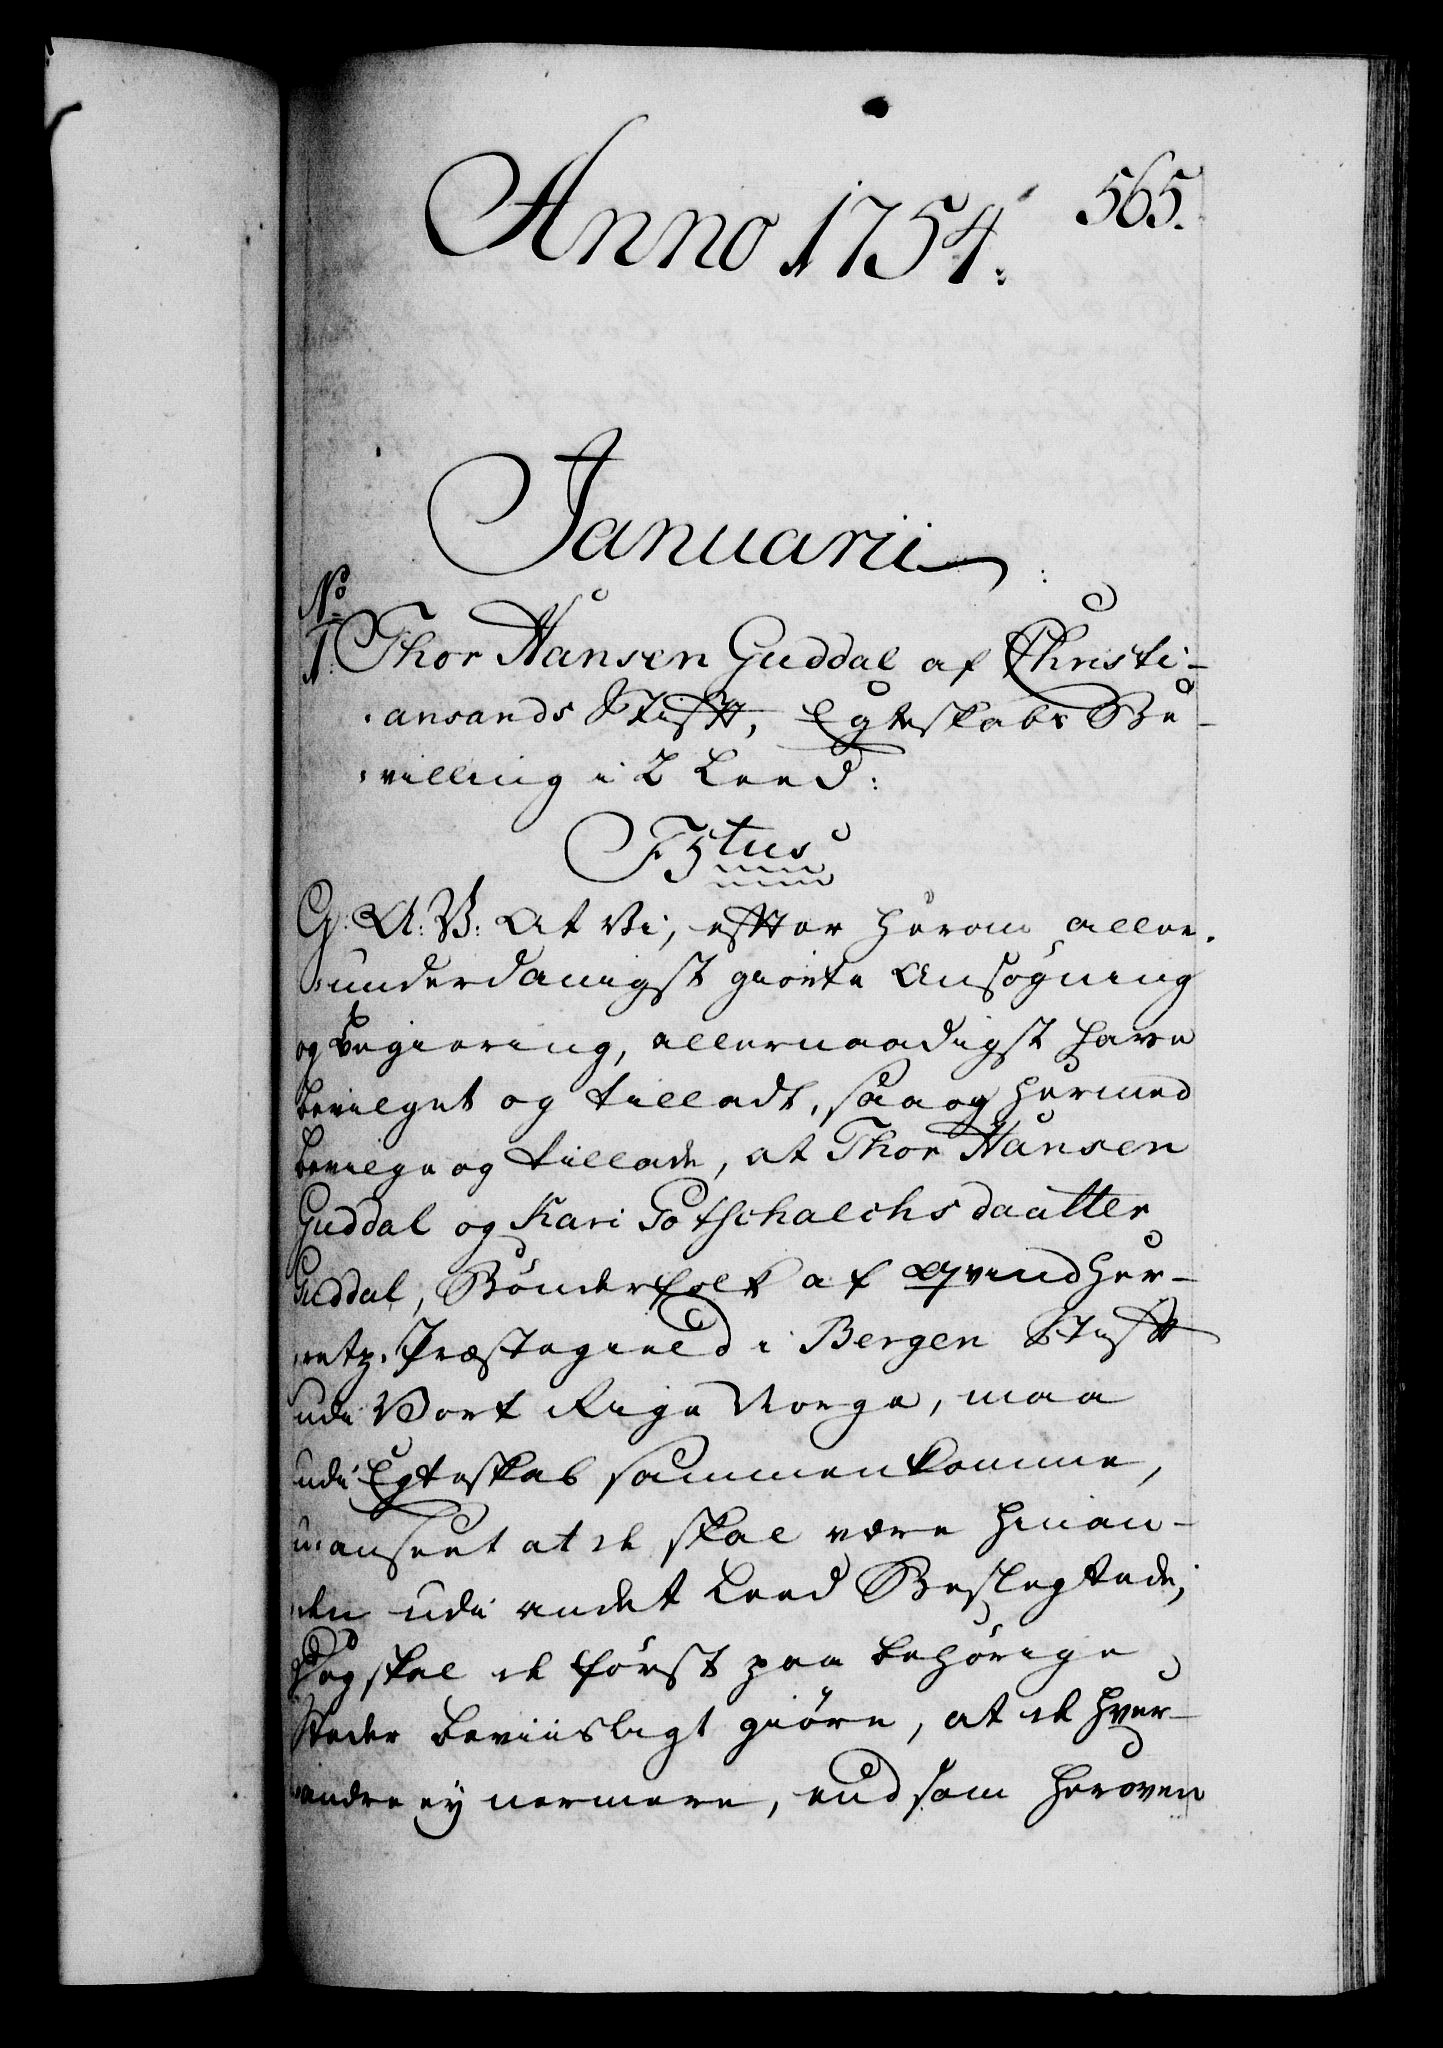 Anno 1754.
565.
Januarii
No
1. Thor Hansen Guddal af Christi-
ansands Stifft, Egteskabs Be-
villing i 2 Leed:
F5tus
G: A: V: At Vi, effter herom aller-
underdanigst giorte Ansøgning
og Begiering, allernaadigst have
bevilget og tilladt, saa og hermed
bevilge og tillade, at Thor Hansen
Guddal og Kari Gotschalchsdaatter
Guddal, Bønderfolk af Qvindher-
retz Præstegield i Bergen Stifft
udi Vort Rige Norge, maa
udi Egteskab sammenkomme,
uanseet at de skal være hinan-
den udi andet Leed Beslegtede;
Dog skal de først paa behørige
Steder beviisligt giøre, at de hver-
andre ey nermere, end som heroven